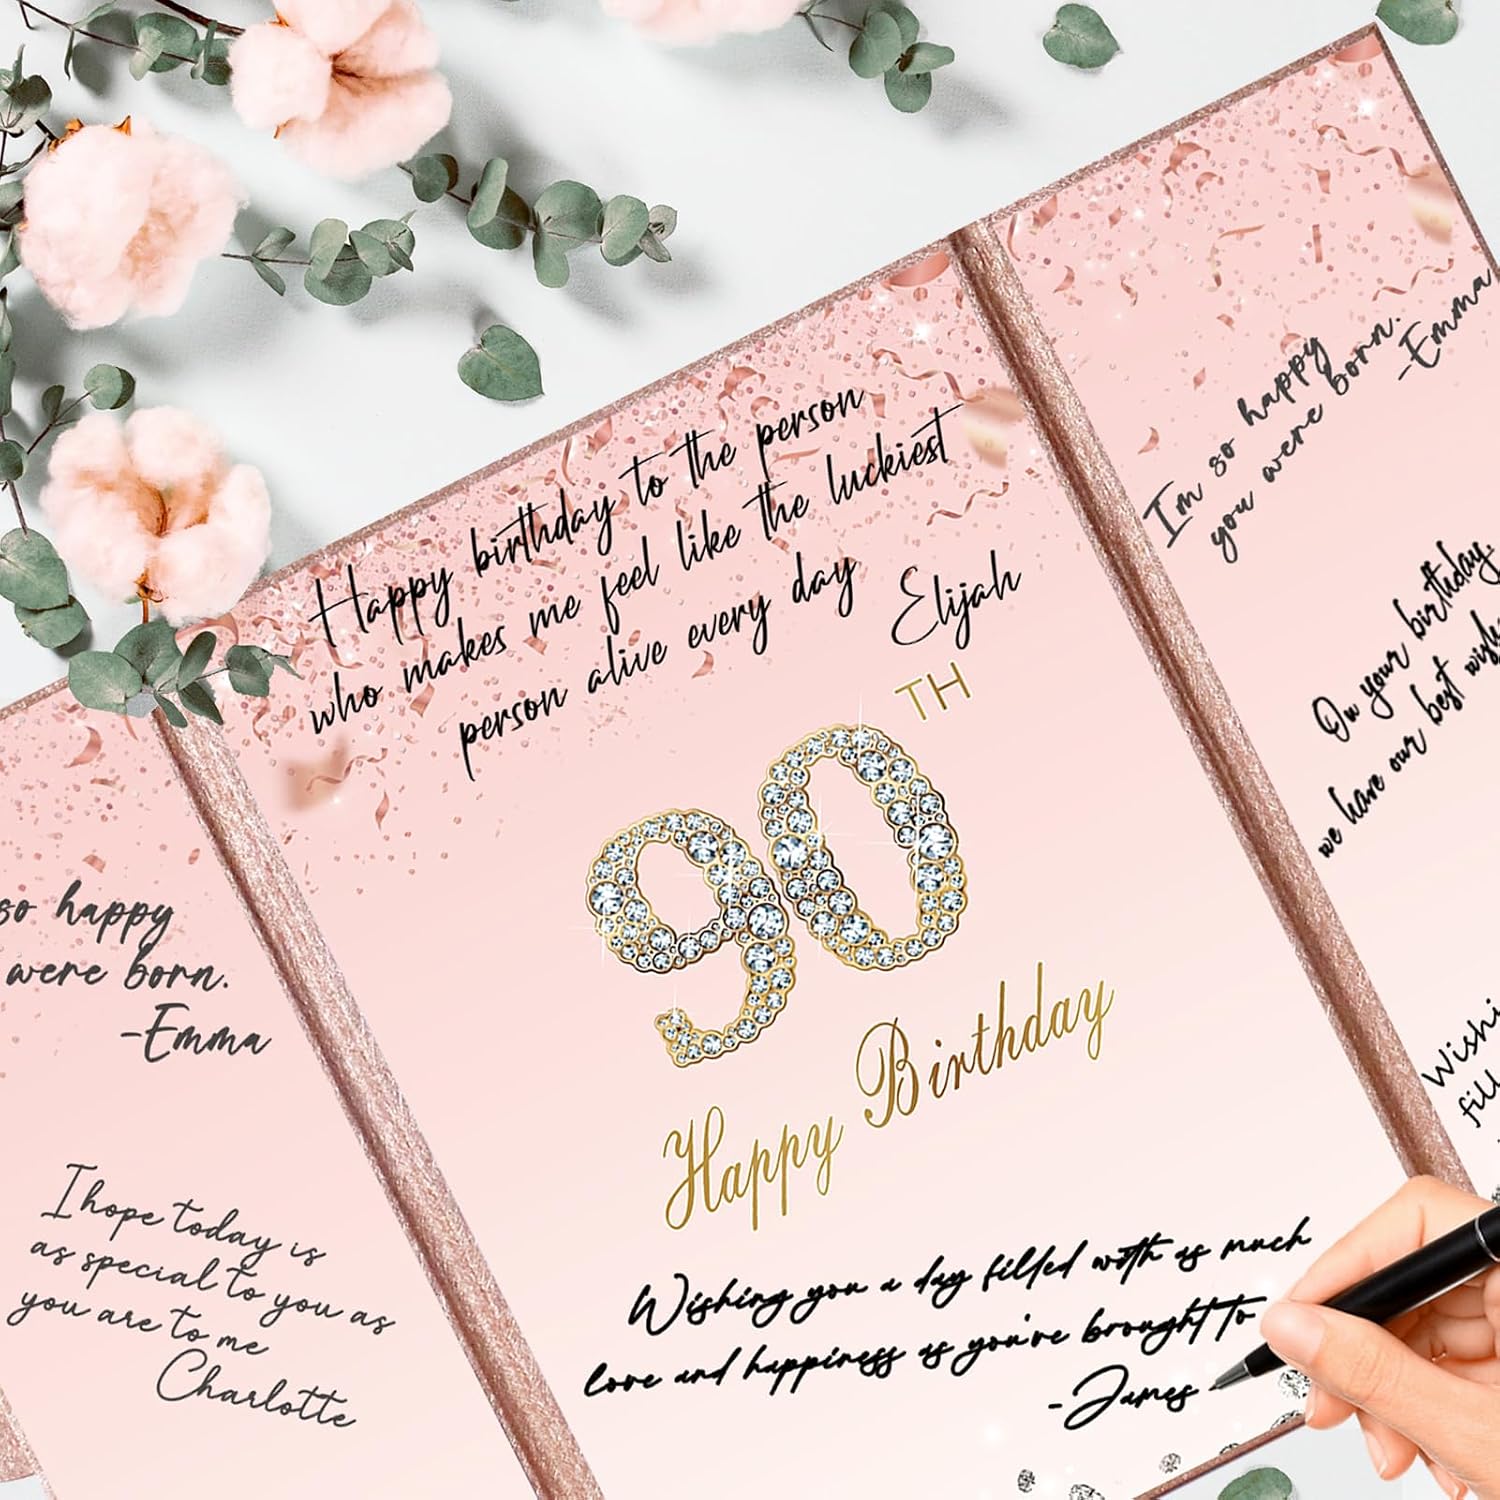 Happy birthday to the person
who makes me feel like the luckiest
person alive every day
Elijah
90TH
Happy Birthday
Wishing you a day filled with as much
love and happiness as you're brought to
-James
so happy
were born.
-Emma
I hope today is
as special to you as
you are to me
Charlotte
I'm so happy
you were born.
-Emma
On your birthday
we have our best
Wishi
fill